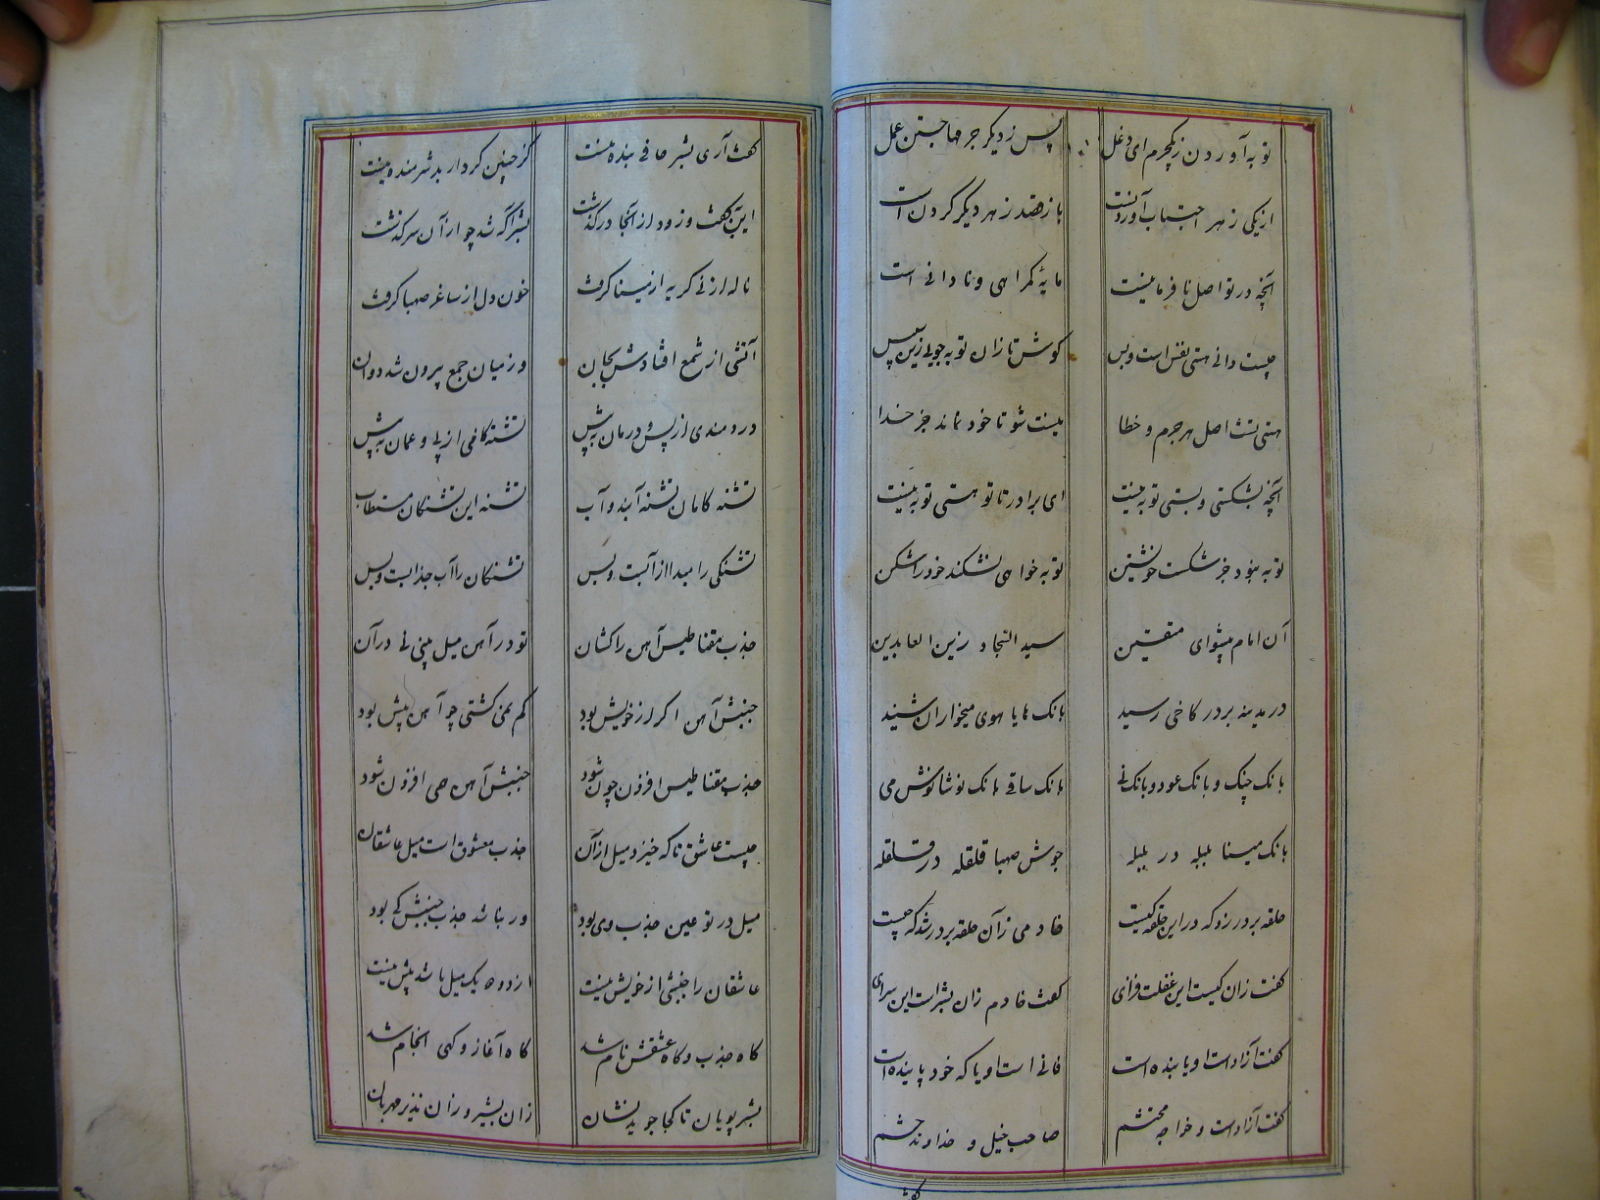 توبه آوردن ز یکجرم ای دغل پس ز دیکر جرمها جستن عمل
از یکی زهر اجتناب آوردنست باز قصد زهر دیکر کردن است
آنچه در تو اصل نافرمانیست مایهٔ کمراهی و نادانی است
چیست دانی هستی نفس است و بس کوش تا زان توبه جویی زین سپس
هستی تست اصل هر جرم و خطا نیست شو تا خود نماند جز خدا
آنچه بشکستی و بستی توبه نیست ای برادر تا تو هستی توبه نیست
توبه نبود جز شکست خویشتن توبه خواهی نشکند خود را شکن
آن امام پیشوای متقین سید السجاد زین العابدین
در مدینه بر در کاخی رسید بانک هایا هوی میخواران شنید
بانک چنک و بانک عود و بانک نی بانک ساقی بانک نوشانوش می
بانک مینا بلبله در بلبله جوش صهبا قلقله در قلقله
حلقه بر در زد که در این حلقه کیست خادمی زان حلقه بر در شد که چیست
کفت زان کیست این غفلت فزای کفت خادم زان بشر است این سرای
کفت آزاد است او یا بنده است فانی است او یا که خود پاینده است
کفت آزاد است و خواجه محتشم صاحب خیل و خداوند حشم
کفت آری بشر حافی بنده نیست کز چنین کردار بد شرمنده نیست
این بکفت و زود از آنجا درکذشت بشر آکه شد چو از آن سرکذشت
ناله از نی کریه از مینا کرفت خون دل از ساغر صهبا کرفت
آتشی از شمع افتادش بجان وز میان جمع بیرون شد دوان
دردمندی از پس و درمان به پیش تشنه کامی از پی و عمان به پیش
تشنه کامان تشنه آبند و آب تشنه این تشنکان مستطاب
تشنکی را مبدا از آبست و بس تشنکان را آب جذابست و بس
جذب مقناطیس آهن را کشان تو در آهن میل بینی نی در آن
جنبش آهن اکر از خویش بود کم نمی کشتی چو آهن بیش بود
جذب مقناطیس افزون چون شود جنبش آهن همی افزون شود
چیست عاشق تا که خیزد میل از آن جذب معشوق است میل عاشقان
میل در تو عین جذب وی بود ور نباشد جذب جنبش کی بود
عاشقان را جنبشی از خویش نیست از دو ره یک میل باشد بیش نیست
کاه جذب و کاه عشقش نام شد کاه آغاز و کهی انجام شد
بشر پویان تا کجا جوید نشان زان بشیر و زان نذیر مهربان